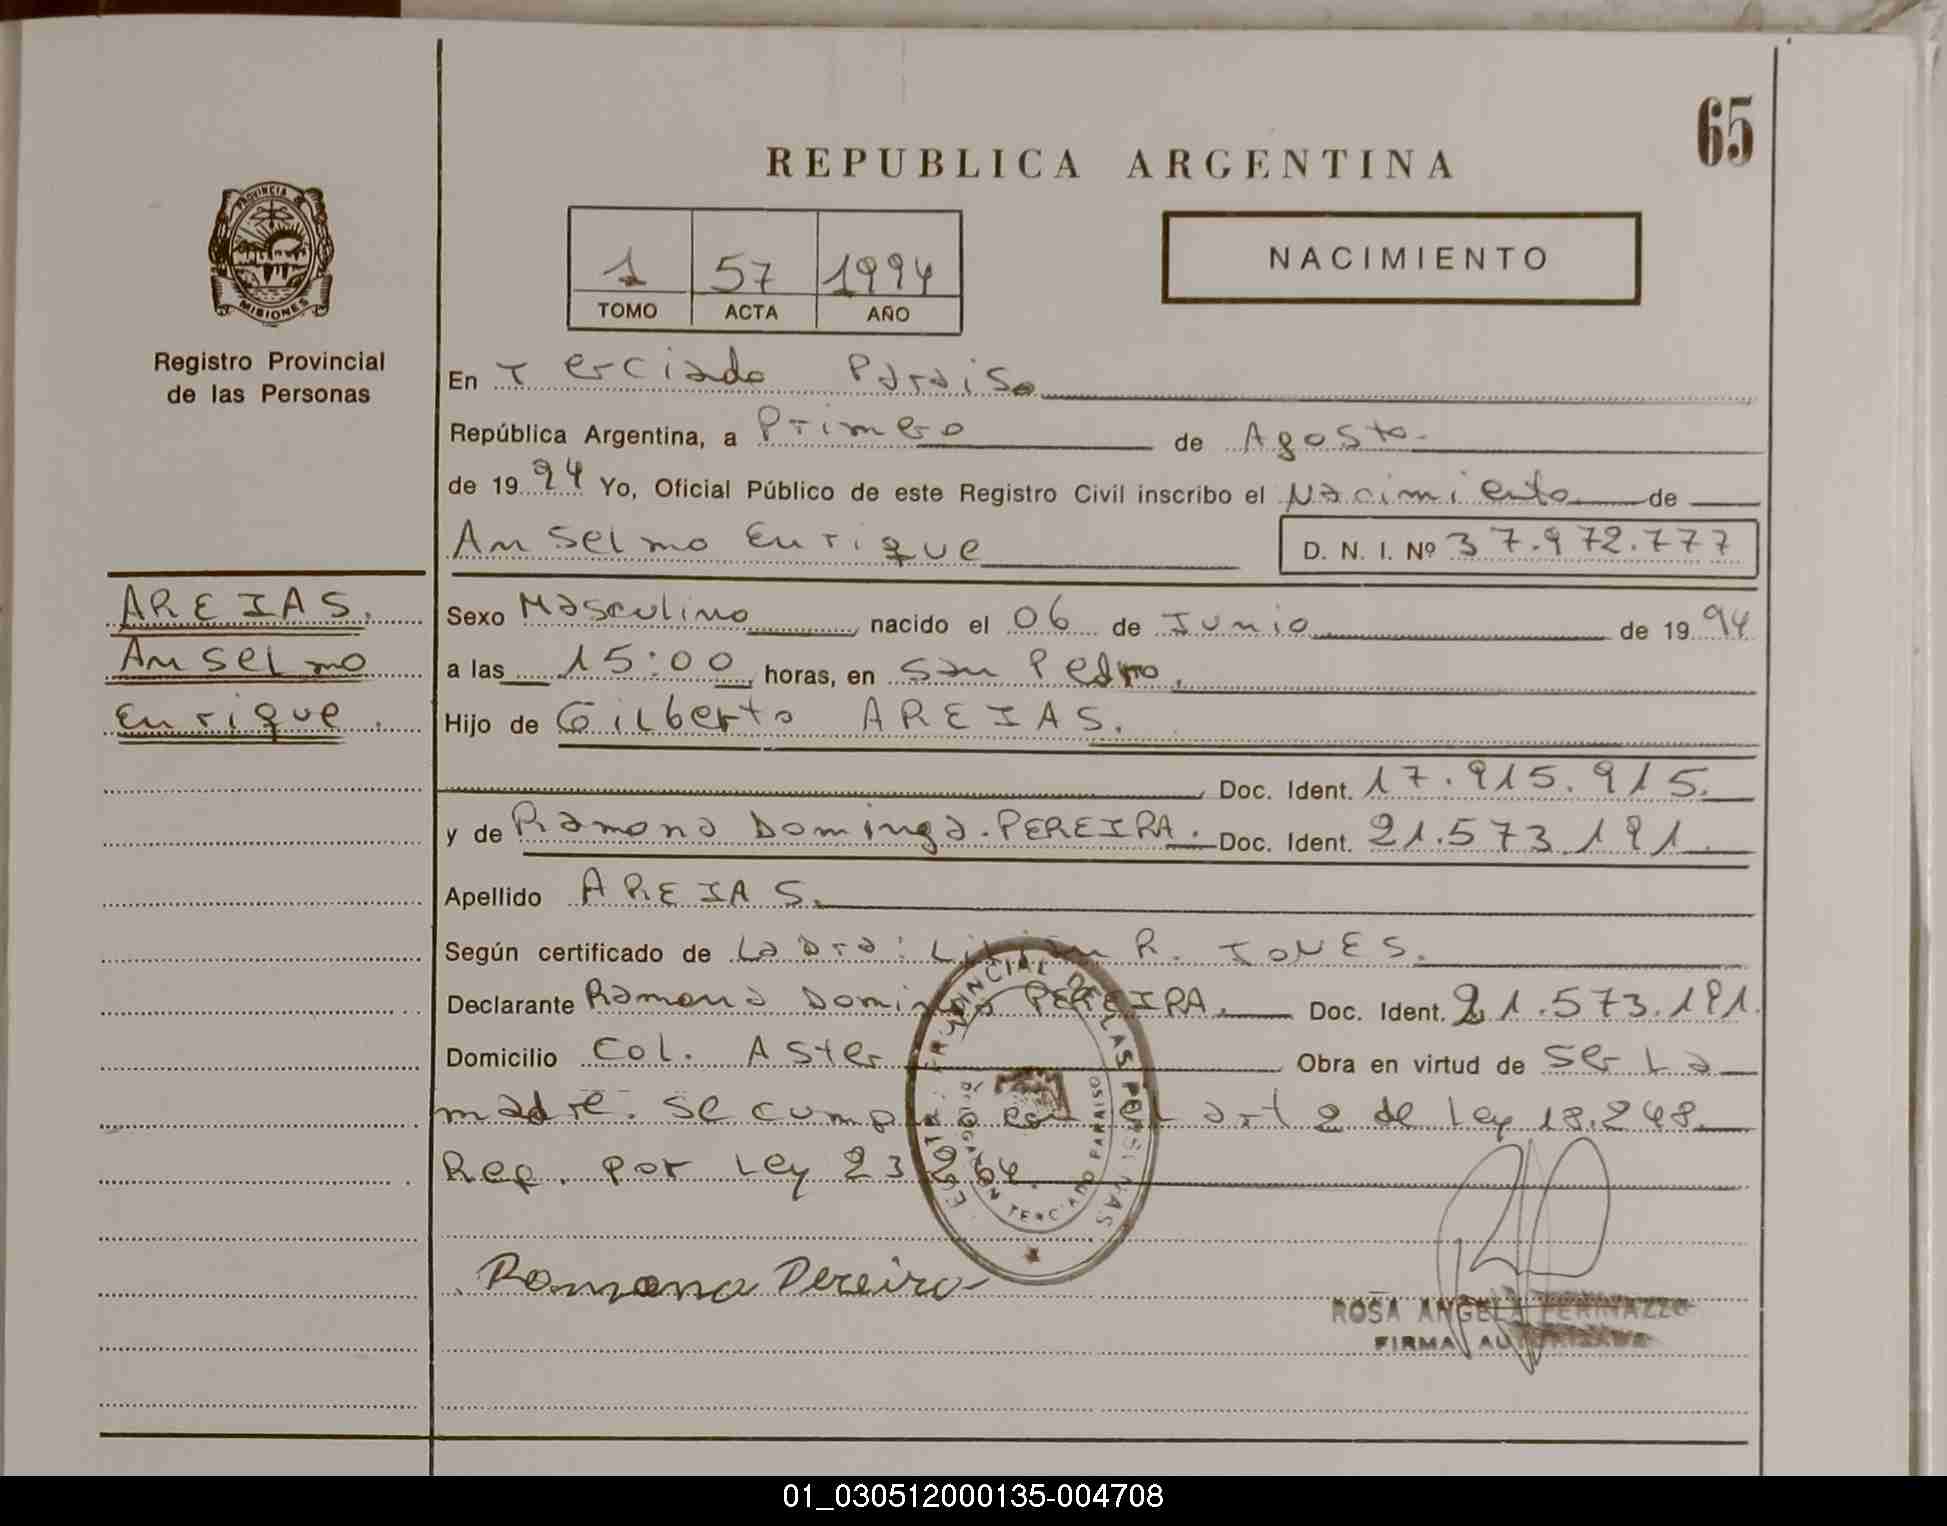 65
REPUBLICA ARGENTINA
PROVINCIA DE
MISIONES
Registro Provincial
de las Personas
1 57 1994
TOMO ACTA AÑO
NACIMIENTO
En Terciado Paraiso
República Argentina, a Primero de Agosto.
de 1994 Yo, Oficial Público de este Registro Civil inscribo el Nacimiento de
Anselmo Enrique D. N. I. Nº 37.972.777
AREIAS.
Anselmo
Enrique.
Sexo Masculino nacido el 06 de Junio de 1994
a las 15:00 horas, en San Pedro.
Hijo de Gilberto AREIAS.
Doc. Ident. 17.915.915.
y de Ramona Dominga. PEREIRA. Doc. Ident. 21.573.191.
Apellido AREIAS.
Según certificado de La Dra: Lilian R. JONES.
Declarante Ramona Dominga PEREIRA. Doc. Ident. 21.573.191.
Domicilio Col. Aster Obra en virtud de ser La
madre. Se cumple con el art 2 de Ley 18.248.
Rep. por Ley 23264.
PROVINCIAL DE LAS PERSONAS
DELEGACION TERCIADO PARAISO
Ramona Pereira
ROSA ANGELA PERINAZZO
FIRMA AUTORIZADA
01_030512000135-004708